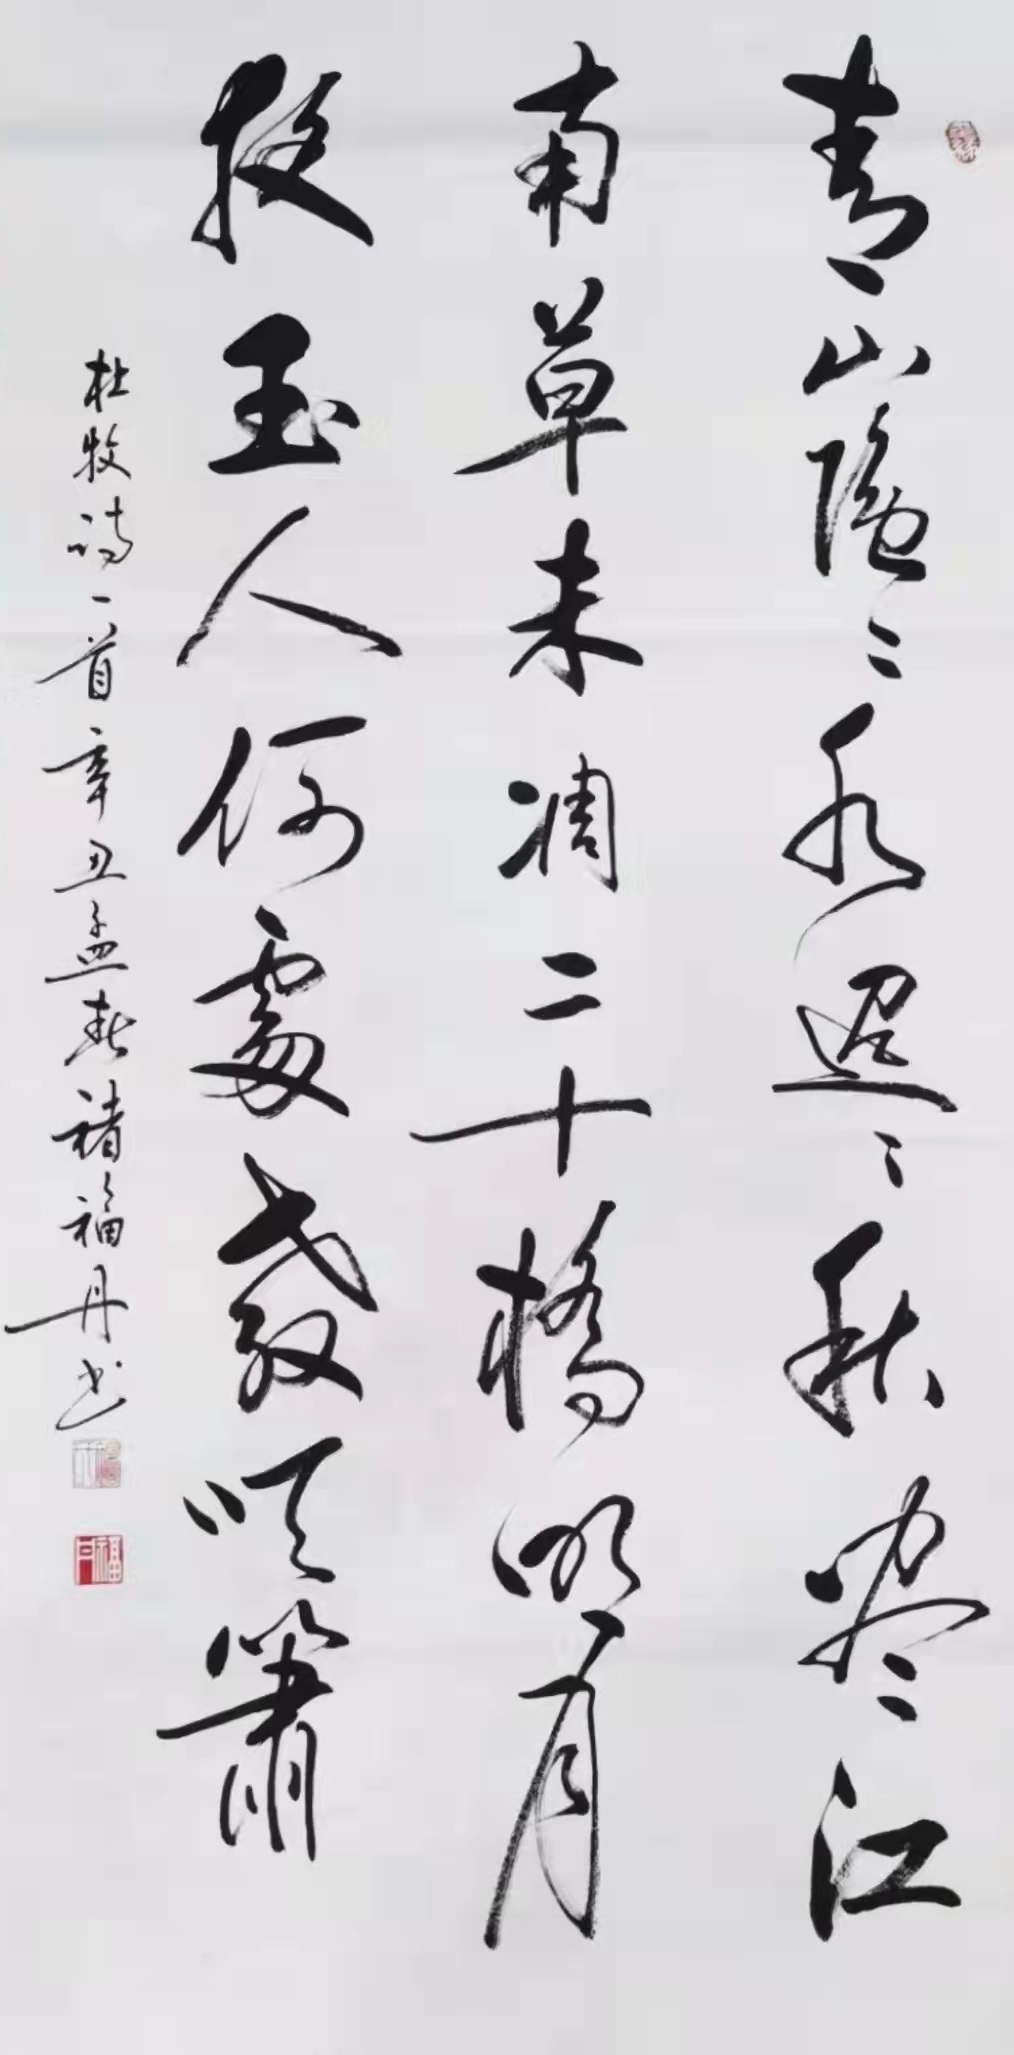 青山隐〻水迢〻秋尽江
南草未凋二十橋明月
夜玉人何處教吹箫
杜牧诗一首辛丑孟春褚福丹书